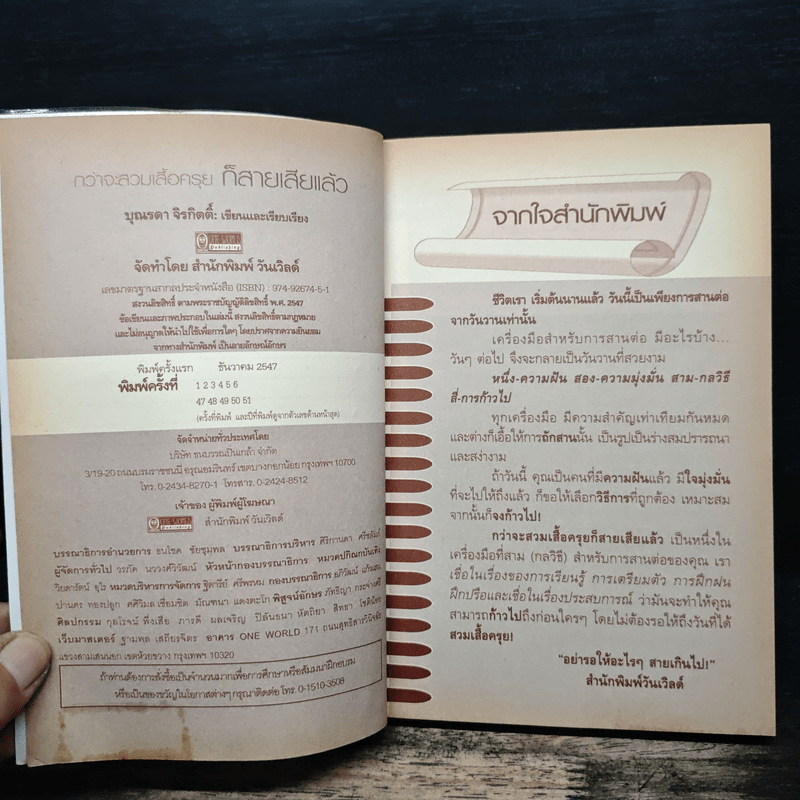 กว่าจะสวมเสื้อครุย ก็สายเสียแล้ว
บุณรดา จิรกิตติ์: เขียนและเรียบเรียง
ONE WORLD
Publishing
จัดทำโดย สำนักพิมพ์ วันเวิลด์
เลขมาตรฐานสากลประจำหนังสือ (ISBN) : 974-92674-5-1
สงวนลิขสิทธิ์ ตามพระราชบัญญัติลิขสิทธิ์ พ.ศ. 2547
ข้อเขียนและภาพประกอบในเล่มนี้ สงวนลิขสิทธิ์ตามกฎหมาย
และไม่อนุญาตให้นำไปใช้เพื่อการใดๆ โดยปราศจากความยินยอม
จากทางสำนักพิมพ์ เป็นลายลักษณ์อักษร
พิมพ์ครั้งแรก ธันวาคม 2547
พิมพ์ครั้งที่ 1 2 3 4 5 6
47 48 49 50 51
(ครั้งที่พิมพ์ และปีที่พิมพ์ดูจากตัวเลขด้านหน้าสุด)
จัดจำหน่ายทั่วประเทศโดย
บริษัท ธนบรรณปิ่นเกล้า จำกัด
3/19-20 ถนนบรมราชชนนี อรุณอมรินทร์ เขตบางกอกน้อย กรุงเทพฯ 10700
โทร. 0-2434-8270-1 โทรสาร. 0-2424-8512
เจ้าของ ผู้พิมพ์ผู้โฆษณา
สำนักพิมพ์ วันเวิลด์
บรรณาธิการอำนวยการ ธนโชค ชัยชุมพล บรรณาธิการบริหาร ศิริกานดา
ผู้จัดการทั่วไป วรภัค นววงศ์วิวัฒน์ หัวหน้ากองบรรณาธิการ หมวดปกิณกบันเทิง
วิยดารัตน์ อุไร หมวดบริหารการจัดการ ฐิตารีย์ ศรีพรหม กองบรรณาธิการ
ปานคร ทองปลูก ศศิวิมล เชี่ยมชิด มัณฑนา แดงตะโก พิสูจน์อักษร ภัทธิญา
ศิลปกรรม กุลโรจน์ พึ่งเสือ ภารดี ผลเจริญ ปิลันธนา หัตถิยา สิทธา
เว็บมาสเตอร์ ฐานพล เสถียรจิตร อาคาร ONE WORLD 171 ถนนสุทธิสารวินิจฉัย
แขวงสามเสนนอก เขตห้วยขวาง กรุงเทพฯ 10320
ถ้าท่านต้องการสั่งซื้อเป็นจำนวนมากเพื่อการศึกษาหรือสัมมนาฝึกอบรม
หรือเป็นของขวัญในโอกาสต่างๆ กรุณาติดต่อ โทร. 0-1510-3508
จากใจสำนักพิมพ์
ชีวิตเรา เริ่มต้นนานแล้ว วันนี้เป็นเพียงการสานต่อ
จากวันวานเท่านั้น
เครื่องมือสำหรับการสานต่อ มีอะไรบ้าง...
วันๆ ต่อไป จึงจะกลายเป็นวันวานที่สวยงาม
หนึ่ง-ความฝัน สอง-ความมุ่งมั่น สาม-กลวิธี
สี่-การก้าวไป
ทุกเครื่องมือ มีความสำคัญเท่าเทียมกันหมด
และต่างก็เอื้อให้การถักสานนั้น เป็นรูปเป็นร่างสมปรารถนา
และสง่างาม
ถ้าวันนี้ คุณเป็นคนที่มีความฝันแล้ว มีใจมุ่งมั่น
ที่จะไปให้ถึงแล้ว ก็ขอให้เลือกวิธีการที่ถูกต้อง เหมาะสม
จากนั้นก็จงก้าวไป!
กว่าจะสวมเสื้อครุยก็สายเสียแล้ว เป็นหนึ่งใน
เครื่องมือที่สาม (กลวิธี) สำหรับการสานต่อของคุณ เรา
เชื่อในเรื่องของการเรียนรู้ การเตรียมตัว การฝึกฝน
ฝึกปรือและเชื่อในเรื่องประสบการณ์ ว่ามันจะทำให้คุณ
สามารถก้าวไปถึงก่อนใครๆ โดยไม่ต้องรอให้ถึงวันที่ได้
สวมเสื้อครุย!
"อย่ารอให้อะไรๆ สายเกินไป!"
สำนักพิมพ์วันเวิลด์